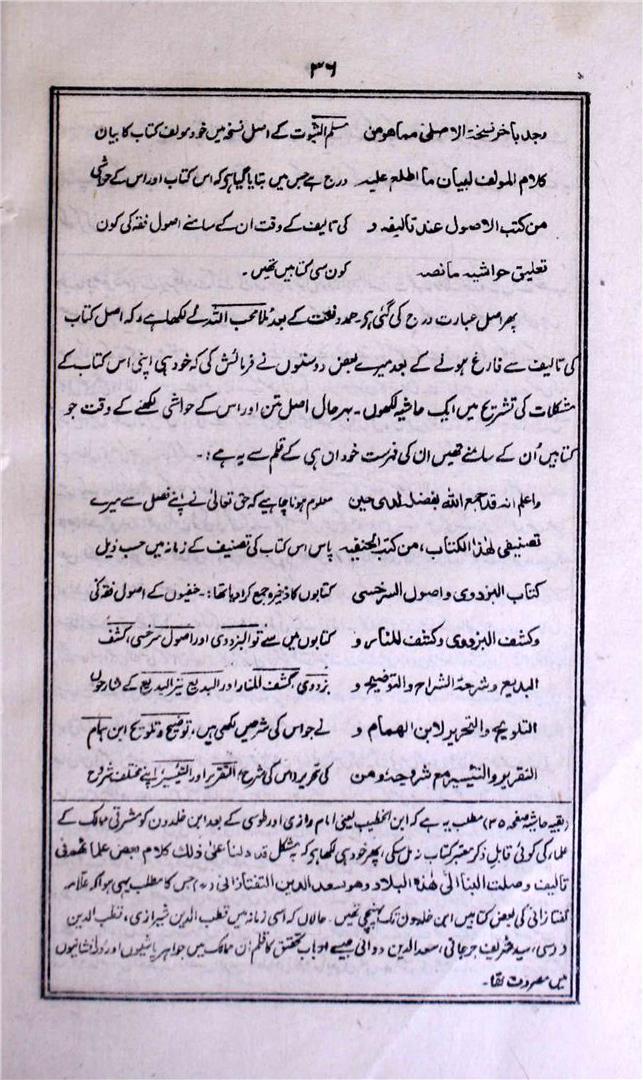 ۳۶
وجد بأخر نسخة الاصلی مما هو من مسلم الثبوت کے اصل نسخہ میں خود مولف کتاب کا بیان
کلام المولف لبیان ما اطلع علیہ درج ہے جس میں بتایا گیا ہی کہ اس کتاب اور اس کے حواشی
من کتب الاصول عند تالیفہ و کی تالیف کے وقت ان کے سامنے اصول فقہ کی کون
تعلیق حواشیہ ما نصہ کون سی کتابیں تھیں۔
پھر اصل عبارت درج کی گئی ہی حمد و نعت کے بعد ملا محب اللہ نے لکھا ہے کہ اصل کتاب
کی تالیف سے فارغ ہونے کے بعد میرے بعض دوستوں نے فرمائش کی کہ خود ہی اپنی اس کتاب کے
مشکلات کی تشریح میں ایک حاشیہ لکھوں۔ بہر حال اصل متن اور اس کے حواشی لکھنے کے وقت جو
کتابیں اُن کے سامنے تھیں ان کی فہرست خود ان ہی کے قلم سے یہ ہے:۔
واعلم انہ قد جمع اللہ بفضل لدی حین معلوم ہونا چاہے کہ حق تعالیٰ نے اپنے فضل سے میرے
تصنیفی لھذا الکتاب، من کتب الحنفیہ پاس اس کتاب کی تصنیف کے زمانہ میں حسب ذیل
کتاب البزدوی و اصول السرخسی کتابوں کا ذخیرہ جمع کرا دیا تھا:۔ حنفیوں کے اصول فقہ کی
و کشف البزدوی و کشف للمنار و کتابوں میں سے تو البزدوی اور اصول سرخسی، کشف
البدیع و شرحہ الشراح والتوضیح و بزدوی، کشف للمنار اور البدیع نیز البدیع کے شارحوں
التلویح والتحریر لابن الھمام و نے جو اس کی شرحیں لکھی ہیں، توضیح و تلویح ابن ہمام
التقریر والتیسیر مع شروحہ و من کی تحریر اس کی شرح التقریر اور التیسیر اپنے مختلف شروح
(بقیہ حاشیہ صفحہ ۳۵) مطلب یہ ہے کہ ابن الخطیب یعنی امام رازی اور طوسی کے بعد ابن خلدون کو مشرقی ممالک کے
علماء کی کوئی قابل ذکر معتبر کتاب نہ مل سکی، پھر خود ہی لکھا ہی کہ قد دلنا علیٰ ذلک کلام بعض علمائھم فی
تالیف وصلت الینا الی ھذہ البلاد وھو سعد الدین التفتازانی جس کا مطلب یہی ہوا کہ علامہ
تفتازانی کی بعض کتابیں ابن خلدون تک پہنچی تھیں۔ حالاں کہ اسی زمانہ میں قطب الدین شیرازی، قطب الدین
سید شریف جرجانی، سعد الدین دوانی جیسے ارباب تحقیق کا قلم ان ممالک میں جواہر پاشیوں اور
میں مصروف تھا۔